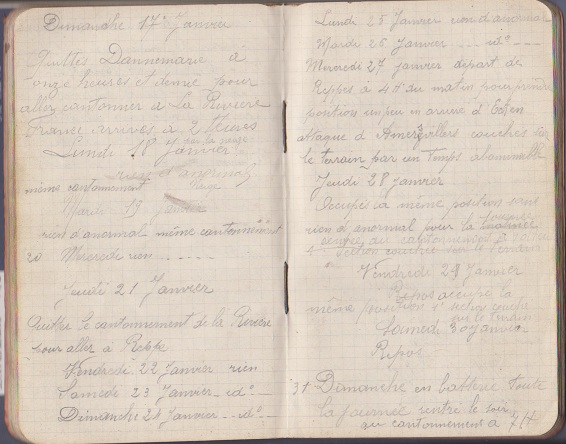 Dimanche 17 Janvier
Quittes Dannemarie à
onze heures et demie pour
aller cantonner à La Riviere
France arrives à 2 Heures
sur la neige
Lundi 18 Janvier
rien d'anormal
même cantonnement
neige
Mardi 19 Janvier
rien d'anormal même cantonnement
20 Mercredi rien _ _ _ _ _
Jeudi 21 Janvier
Quitte le cantonnement de la Riviere
pour aller à Reppe
Vendredi 22 Janvier rien
Samedi 23 Janvier _ id° _
Dimanche 24 Janvier _ _ id° _
Lundi 25 Janvier rien d'anormal
Mardi 26 Janvier _ _ _ id° _ _
Mercredi 27 janvier départ de
Reppes à 4 du matin pour prendre
position un peu en arrière d'
attaque d'Amerzvillers couchés sur
le terrain par un Temps abominable
Jeudi 28 Janvier
Occupés la même position sans
rien d'enormal pour la journée
au cantonnement à
section couchée sur le terrain
Vendredi 29 Janvier
Repos occupé la
même position section couche
sur le terrain
Samedi 30 Janvier
Repos
31 Dimanche en batterie toute
la journée rentré le soir
au cantonnement à 7 H